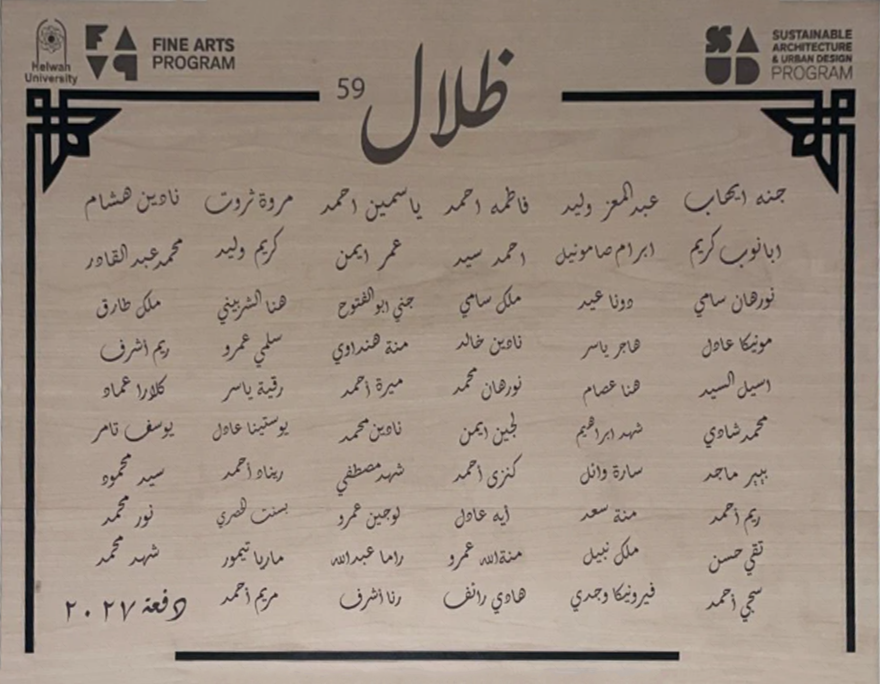 Helwan University
FINE ARTS PROGRAM
SUSTAINABLE ARCHITECTURE & URBAN DESIGN PROGRAM
ظلال 59
جنه ايهاب عبدالمعز وليد فاطمه احمد ياسمين احمد مروة ثروت نادين هشام
ابانوب كريم ابرام صامونيل احمد سيد عمر ايمن كريم وليد محمد عبد القادر
نورهان سامي دونا عيد ملك سامي جني ابو الفتوح هنا الشربيني ملك طارق
مونيكا عادل هاجر ياسر نادين خالد منة هنداوي سلمي عمرو ريم أشرف
اسيل السيد هنا عصام نورهان محمد ميرة أحمد رقية ياسر كلارا عماد
محمد شادي شهد ابراهيم لجين ايمن نادين محمد يوستينا عادل يوسف تامر
بيير ماجد سارة وائل كنزى أحمد شهد مصطفي ريناد أحمد سيد محمود
ريم أحمد منة سعد آيه عادل لوجين عمرو بسنت المصري نور محمد
تقي حسن ملك نبيل منةالله عمرو راما عبدالله ماريا تيمور شهد محمد
سجي أحمد فيرونيكا وجدي هادي رانف رنا أشرف مريم أحمد دفعة ٢٠٢٧